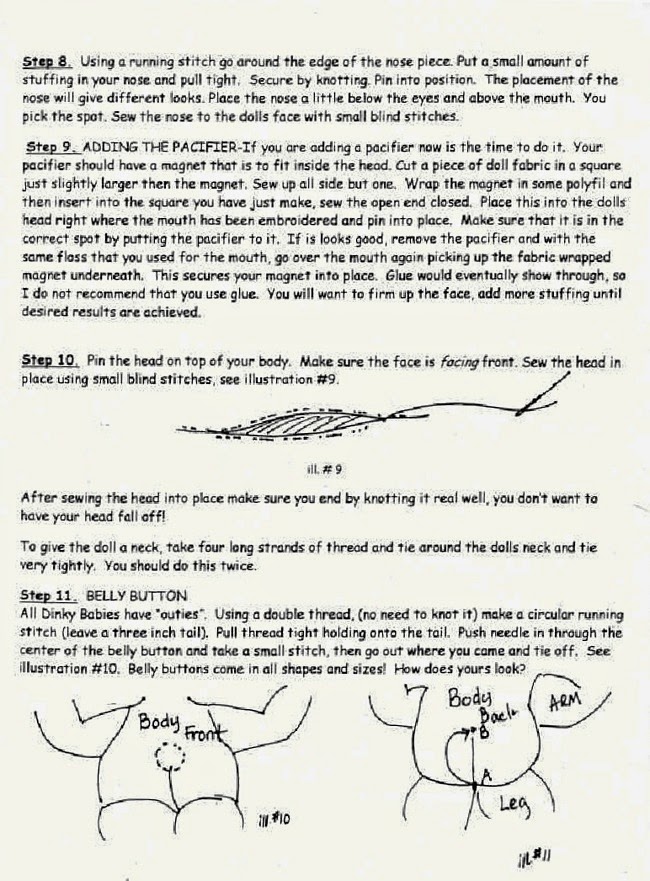 Step 8. Using a running stitch go around the edge of the nose piece. Put a small amount of
stuffing in your nose and pull tight. Secure by knotting. Pin into position. The placement of the
nose will give different looks. Place the nose a little below the eyes and above the mouth. You
pick the spot. Sew the nose to the dolls face with small blind stitches.
Step 9. ADDING THE PACIFIER-If you are adding a pacifier now is the time to do it. Your
pacifier should have a magnet that is to fit inside the head. Cut a piece of doll fabric in a square
just slightly larger then the magnet. Sew up all side but one. Wrap the magnet in some polyfil and
then insert into the square you have just make, sew the open end closed. Place this into the dolls
head right where the mouth has been embroidered and pin into place. Make sure that it is in the
correct spot by putting the pacifier to it. If is looks good, remove the pacifier and with the
same floss that you used for the mouth, go over the mouth again picking up the fabric wrapped
magnet underneath. This secures your magnet into place. Glue would eventually show through, so
I do not recommend that you use glue. You will want to firm up the face, add more stuffing until
desired results are achieved.
Step 10. Pin the head on top of your body. Make sure the face is facing front. Sew the head in
place using small blind stitches, see illustration #9.
ill. # 9
After sewing the head into place make sure you end by knotting it real well, you don't want to
have your head fall off!
To give the doll a neck, take four long strands of thread and tie around the dolls neck and tie
very tightly. You should do this twice.
Step 11. BELLY BUTTON
All Dinky Babies have "outies". Using a double thread, (no need to knot it) make a circular running
stitch (leave a three inch tail). Pull thread tight holding onto the tail. Push needle in through the
center of the belly button and take a small stitch, then go out where you came and tie off. See
illustration #10. Belly buttons come in all shapes and sizes! How does yours look?
Body
Front
ill #10
Body
Back
ARM
B
A
Leg
ill #11